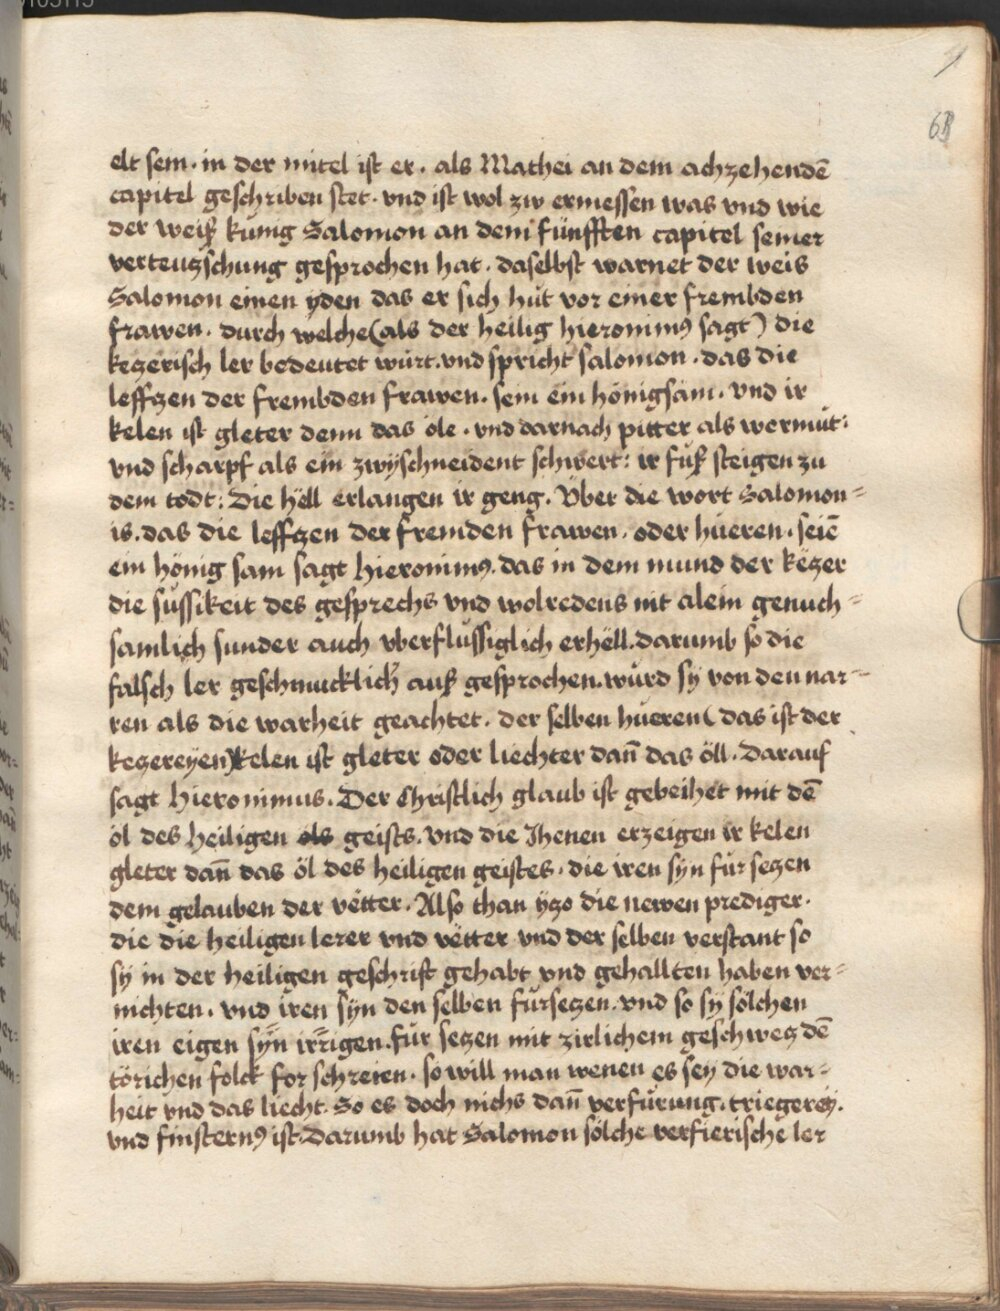 elt sein. in der mitel ist er. als Mathei an dem achzehendē
capitel geschriben stet. vnd ist wol zw ermessen was vnd wie
der weiß kunig Salomon an dem fünfften capitel seiner
verteuzschung gesprochen hat. daselbst warnet der weis
Salomon einen yden das er sich hut vor einer frembden
frawen. durch welche (als der heilig hieronimꝰ sagt) die
kezerisch ler bedeutet würt. vnd spricht salomon. das die
leffzen der frembden frawen. sein ein hönigsam. vnd ir
kelen ist gleter denn das öle. vnd darnach pitter als wermůt:
vnd scharpf als ein zwyschneident schwert: ir fuß steigen zu
dem todt: Die hëll erlangen ir geng. Vber die wort Salomon=
is. das die leffzen der fremden frawen. oder hüeren. seiē
ein hönig sam sagt hieronimꝰ. das in dem mund der këzer
die süssikeit des gesprechs vnd wolredens nit alein genuch=
samlich sunder auch vberflüssiglich erhëll. darumb so die
falsch ler geschmucklich auß gesprochen. würd sy von den nar=
ren als die warheit geachtet. der selben hüeren (das ist der
kezereyen) kelen ist gleter oder liechter dañ das öll. darauf
sagt hieronimus. Der Christlich glaub ist gebeihet mit dē
öl des heiligen ols geists. vnd die Jhenen erzeigen ir kelen
gleter dañ das öl des heiligen geistes. die iren syn für sezen
dem gelauben der vëtter. Also than yzo die newen prediger.
die die heiligen lerer vnd vëtter vnd der selben verstant so
sy in der heiligen geschrift gehabt vnd gehallten haben ver=
nichten. vnd iren syn den selben fürsezen. vnd so sy sölchen
iren eigen syn irrigen. für sezen mit zirlichem geschwez dē
törichen folck for schreien. so will man wenen es sey die war=
heit vnd das liecht. So es doch nichs dañ verfürung. triegerey.
vnd finsternꝰ ist. Darumb hat Salomon sölche verfierische ler